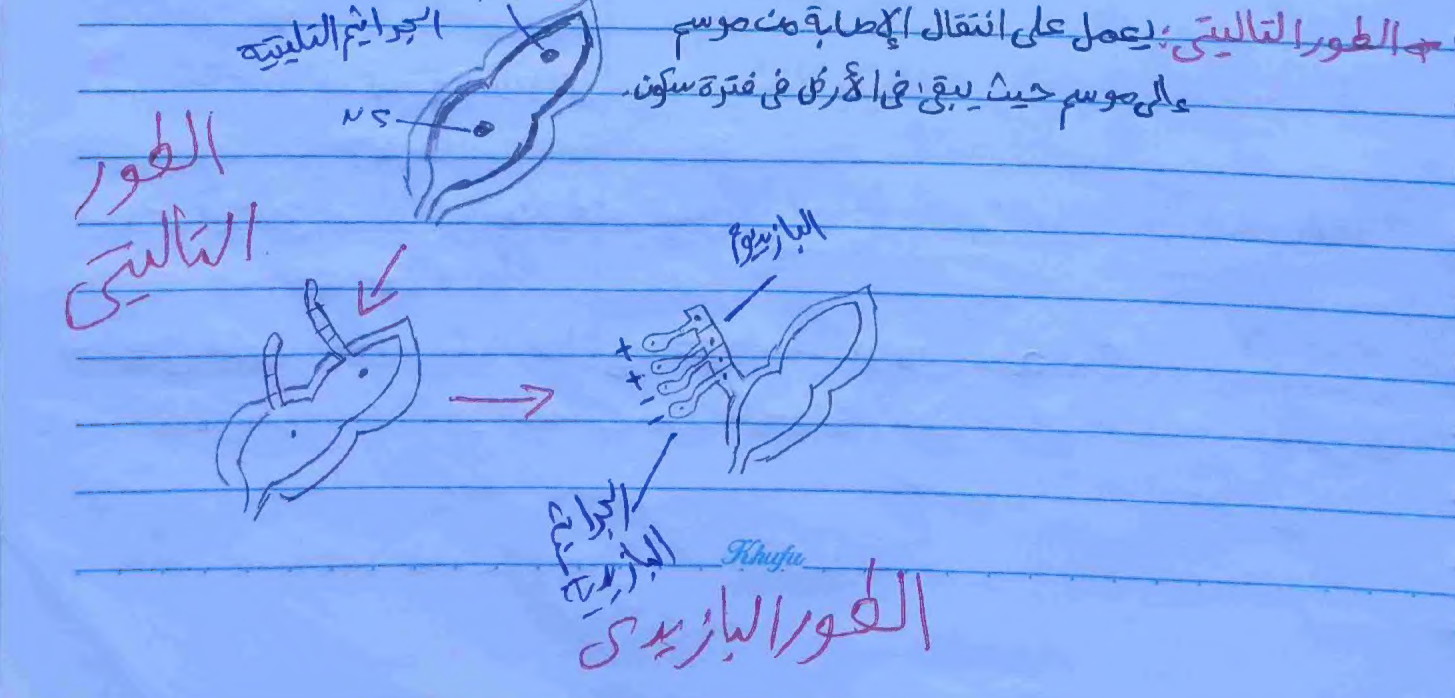 الطور التاليتى: يعمل على انتقال الإصابة من موسم
إلى موسم حيث يبقى فى الأرض فى فترة سكون.
الجراثيم التليتيه
2N
الطور
التاليتى
البازيديوم
+
+
-
-
الجراثيم
البازيدية
Khufu
الطور البازيدى